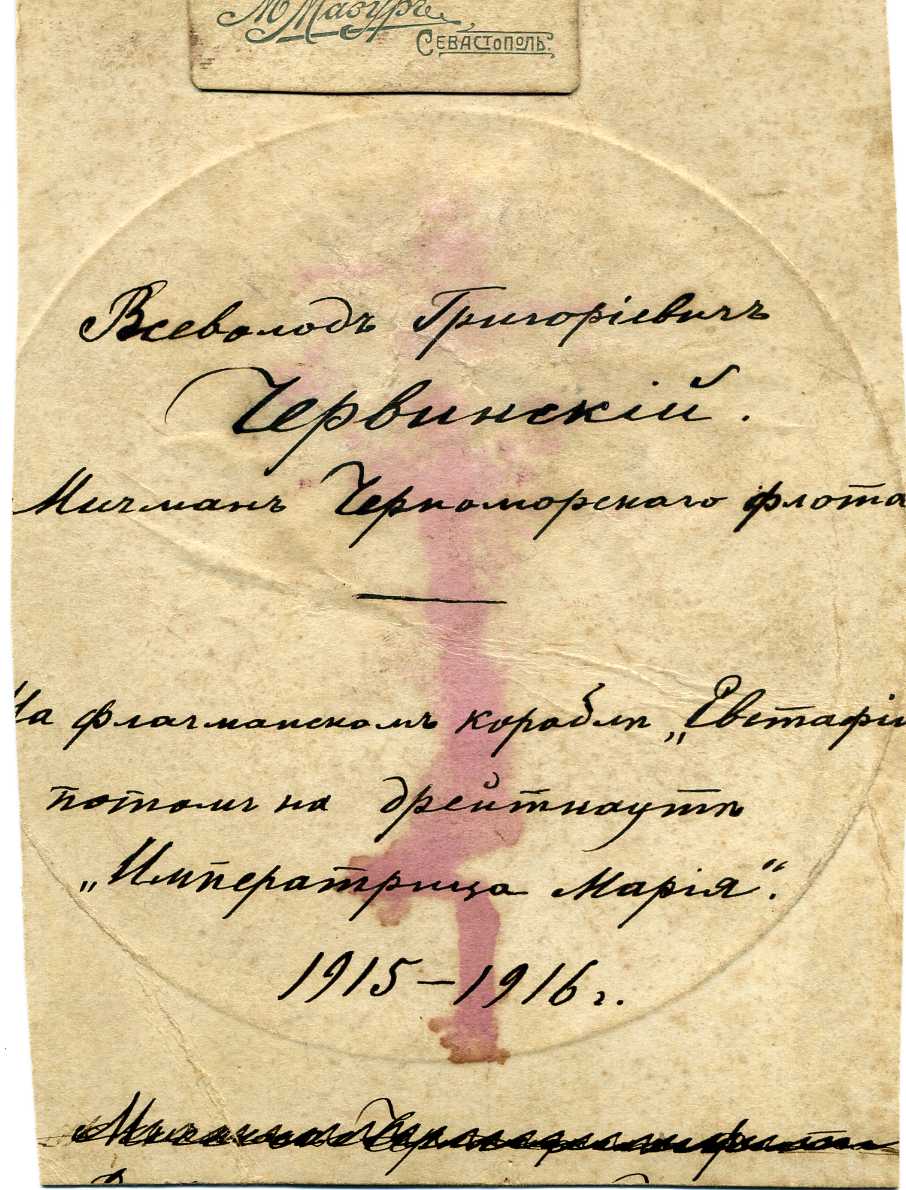 М Мазуръ
СЕВАСТОПОЛЬ.
Всеволодъ Григоріевичъ
Червинскій.
Мичманъ Черноморскаго флота
На флагманскомъ кораблѣ „Евстафій
потомъ на дрейтнаутѣ
„Императрица Марія".
1915–1916 г.